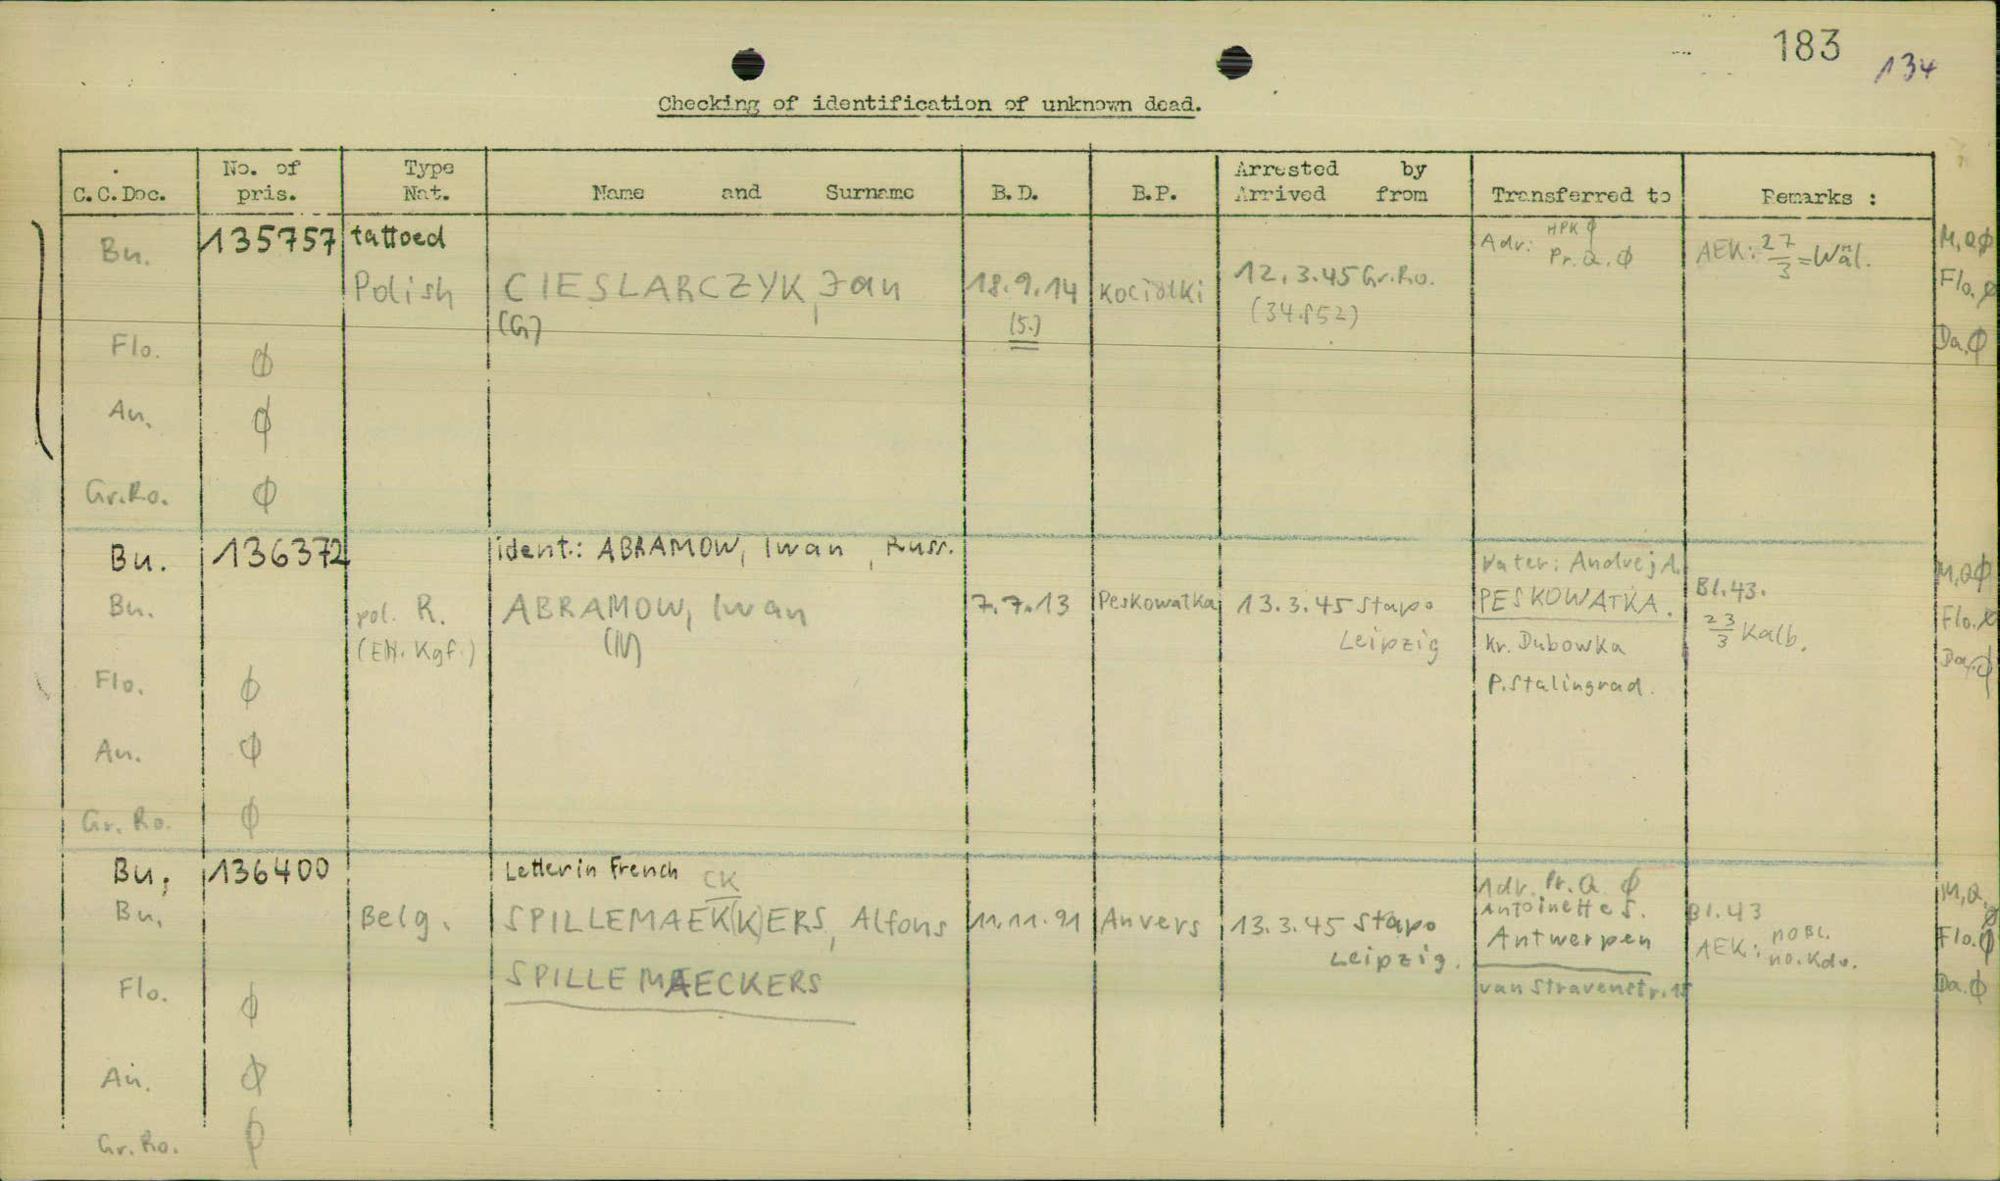 183
134
Checking of identification of unknown dead.
C.C.Doc. No. of pris. Type Nat. Name and Surname B.D. B.P. Arrested by Arrived from Transferred to Remarks :
Bu. 135757 tattoed Adv: HPK Ø Pr.Q. Ø AEK: 27/3 = Wäl. M,Q Ø
Polish CIESLARCZYK, Jan 18.9.14 Kociolki 12.3.45 Gr.Ro. Flo. Ø
(G) (5.) (34852)
Flo. Ø Da. Ø
An. Ø
Gr.Ro. Ø
Bu. 136372 ident.: ABRAMOW, Iwan, Russ. Vater: Andrej A. M,Q Ø
Bu. pol. R. ABRAMOW, Iwan 7.7.13 Peskowatka 13.3.45 Stapo PESKOWATKA. Bl.43. Flo. Ø
(EH. Kgf.) (N) Leipzig Kr. Dubowka 23/3 Kalb.
Flo. Ø P.Stalingrad. Da. Ø
An. Ø
Gr. Ro. Ø
Bu; 136400 Letter in French CK Adv. Pr. Q. Ø M,Q. Ø
Bu. Belg. SPILLEMAEK(K)ERS, Alfons 11.11.91 Anvers 13.3.45 Stapo Antoinette S. Bl.43
Leipzig. Antwerpen AEK: no Bl. no. Kdv. Flo. Ø
Flo. Ø SPILLEMAECKERS van Stravenstr. 15 Da. Ø
An. Ø
Gr. Ro. Ø